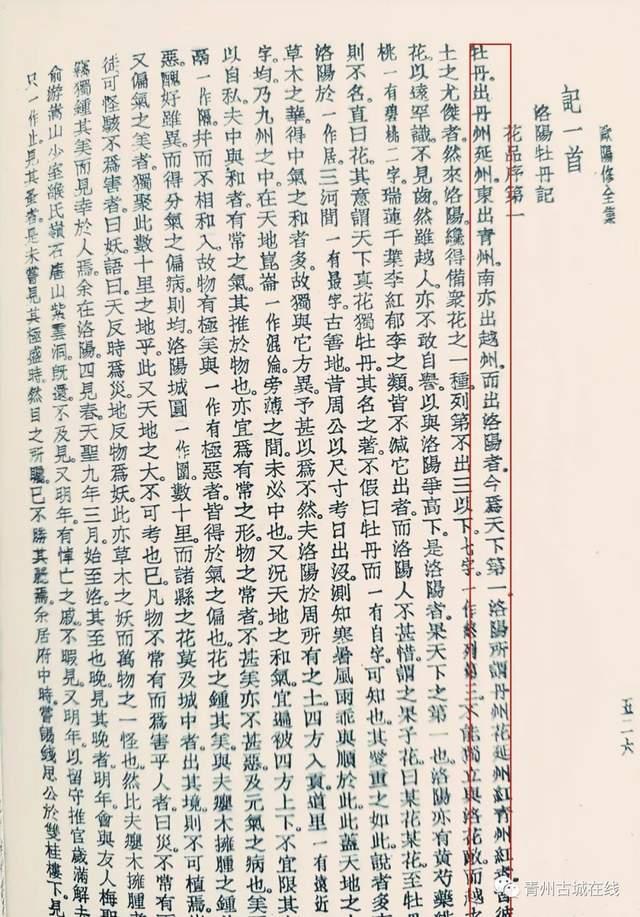 歐陽修全集
五二六
記一首
洛陽牡丹記
花品序第一
牡丹出丹州延州。東出青州。南亦出越州。而出洛陽者。今爲天下第一。洛陽所謂丹州花延州紅青州紅者皆彼
土之尤傑者。然來洛陽。纔得備衆花之一種。列第不出三以下。七字。一作終列第三。不能獨立與洛花敵。而越之
花以遠罕識不見齒。然雖越人亦不敢自譽。以與洛陽爭高下。是洛陽者果天下之第一也。洛陽亦有黃芍藥緋
桃一有碧桃二字。瑞蓮千葉李紅郁李之類。皆不減它出者。而洛陽人不甚惜。謂之果子花。曰某花某花。至牡
則不名直曰花。其意謂天下真花獨牡丹。其名之著不假曰牡丹而一有自字。可知也。其愛重之如此。說者多
洛陽於一作居。三河間一有最字。古善地。昔周公以尺寸考日出沒。測知寒暑風雨乖與順於此。此蓋天地之
草木之華得中氣之和者多。故獨與它方異。予甚以爲不然。夫洛陽於周所有之土。四方入貢道里一有遠近
字。均。乃九州之中。在天地崑崙一作混淪。旁薄之間。未必中也。又況天地之和氣。宜遍被四方上下。不宜限其
以自私。夫中與和者。有常之氣。其推於物也。亦宜爲有常之形。物之常者。不甚美亦不甚惡。及元氣之病也。
鬲一作隔。并而不相和入。故物有極美與一作有極惡者。皆得於氣之偏也。花之鍾其美。與夫癭木擁腫之
惡。醜好雖異。而得分氣之偏病則均。洛陽城圓一作圍。數十里。而諸縣之花莫及城中者。出其境則不可植焉。
又偏氣之美者。獨聚此數十里之地乎。此又天地之大不可考也已。凡物不常有而爲害乎人者曰災。不常有
徒可怪駭不爲害者曰妖。語曰天反時爲災。地反物爲妖。此亦草木之妖而萬物之一怪也。然比夫癭木擁腫者
竊獨鍾其美而見幸於人焉。余在洛陽四見春。天聖九年三月。始至洛。其至也晚。見其晚者。明年。會與友人梅聖
俞游嵩山少室緱氏嶺石唐山紫雲洞。既還不及見。又明年。有悼亡之戚。不暇見。又明年。以留守推官歲滿解去
只一作止。見其蚤者。是未嘗見其極盛時。然目之所矚。已不勝其麗焉。余居府中時。嘗謁錢思公於雙桂樓下。見
青州古城在线